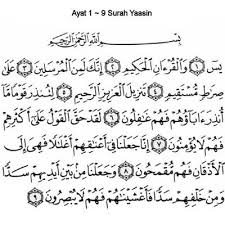 Ayat 1 ~ 9 Surah Yaasin
بِسْمِ اللَّهِ الرَّحْمَٰنِ الرَّحِيمِ
يسٓ ۝١ وَالْقُرْءَانِ الْحَكِيمِ ۝٢ إِنَّكَ لَمِنَ الْمُرْسَلِينَ ۝٣ عَلَىٰ
صِرَٰطٍ مُّسْتَقِيمٍ ۝٤ تَنزِيلَ الْعَزِيزِ الرَّحِيمِ ۝٥ لِتُنذِرَ قَوْمًا مَّا
أُنذِرَ ءَابَآؤُهُمْ فَهُمْ غَٰفِلُونَ ۝٦ لَقَدْ حَقَّ الْقَوْلُ عَلَىٰٓ أَكْثَرِهِمْ
فَهُمْ لَا يُؤْمِنُونَ ۝٧ إِنَّا جَعَلْنَا فِىٓ أَعْنَٰقِهِمْ أَغْلَٰلًا فَهِىَ إِلَى
الْأَذْقَانِ فَهُم مُّقْمَحُونَ ۝٨ وَجَعَلْنَا مِنۢ بَيْنِ أَيْدِيهِمْ سَدًّا
وَمِنْ خَلْفِهِمْ سَدًّا فَأَغْشَيْنَٰهُمْ فَهُمْ لَا يُبْصِرُونَ ۝٩